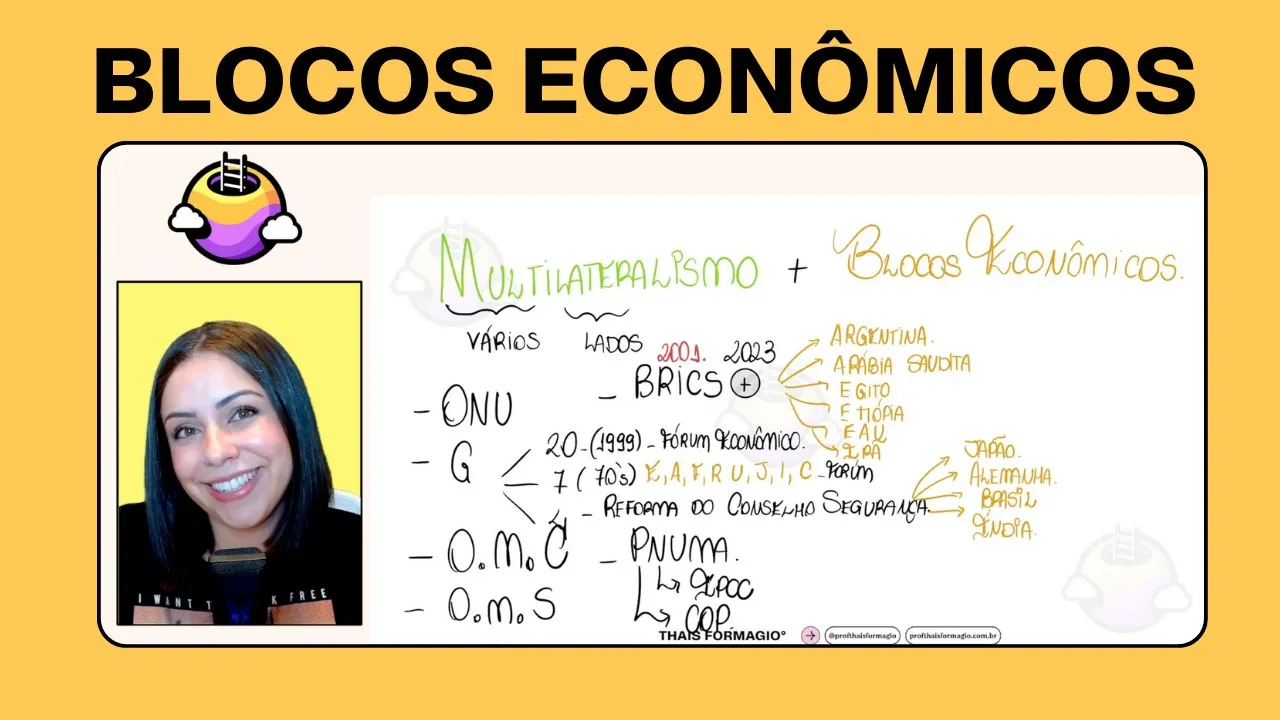 BLOCOS ECONÔMICOS
MULTILATERALISMO + BLOCOS ECONÔMICOS.
VÁRIOS LADOS
2001. 2023
- BRICS +
ARGENTINA.
ARÁBIA SAUDITA
EGITO
ETIÓPIA
EAU
IRÃ
- ONU
- G
20 - (1999) - FÓRUM ECONÔMICO.
7 (70's) E, A, F, R U, J, I, C - FÓRUM
4
- REFORMA DO CONSELHO SEGURANÇA.
JAPÃO.
ALEMANHA.
BRASIL
ÍNDIA.
- O.M.C
- O.M.S
- PNUMA.
IPCC
COP.
I WANT T K FREE
THAIS FORMAGIO°
@profthaisformagio
profthaisformagio.com.br